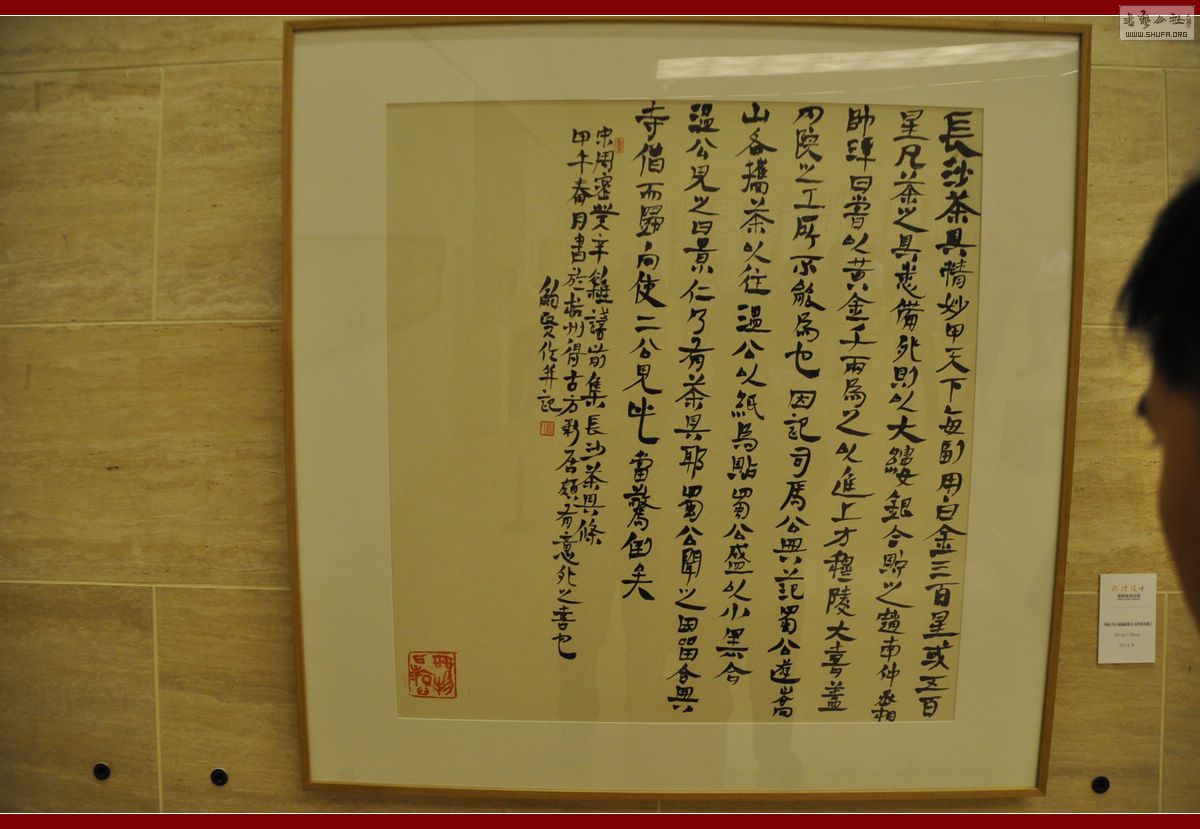 長沙茶具精妙甲天下每副用白金三百星或五百
星凡茶之具悉備外則以大縷銀合貯之趙南仲丞相
帥潭日嘗以黃金千兩為之以進上方穆陵大喜蓋
內院之工所不能為也因記司馬公與范蜀公遊嵩
山各攜茶以往溫公以紙為貼蜀公盛以小黑合
溫公見之曰景仁乃有茶具耶蜀公聞之因留合與
寺僧而歸向使二公見此當驚倒矣
宋周密癸辛雜識前集長沙茶具條
甲午春月書於杭州得古方彩居頗有意外之喜也
鮑賢倫并記
书艺公社
WWW.SHUFA.ORG